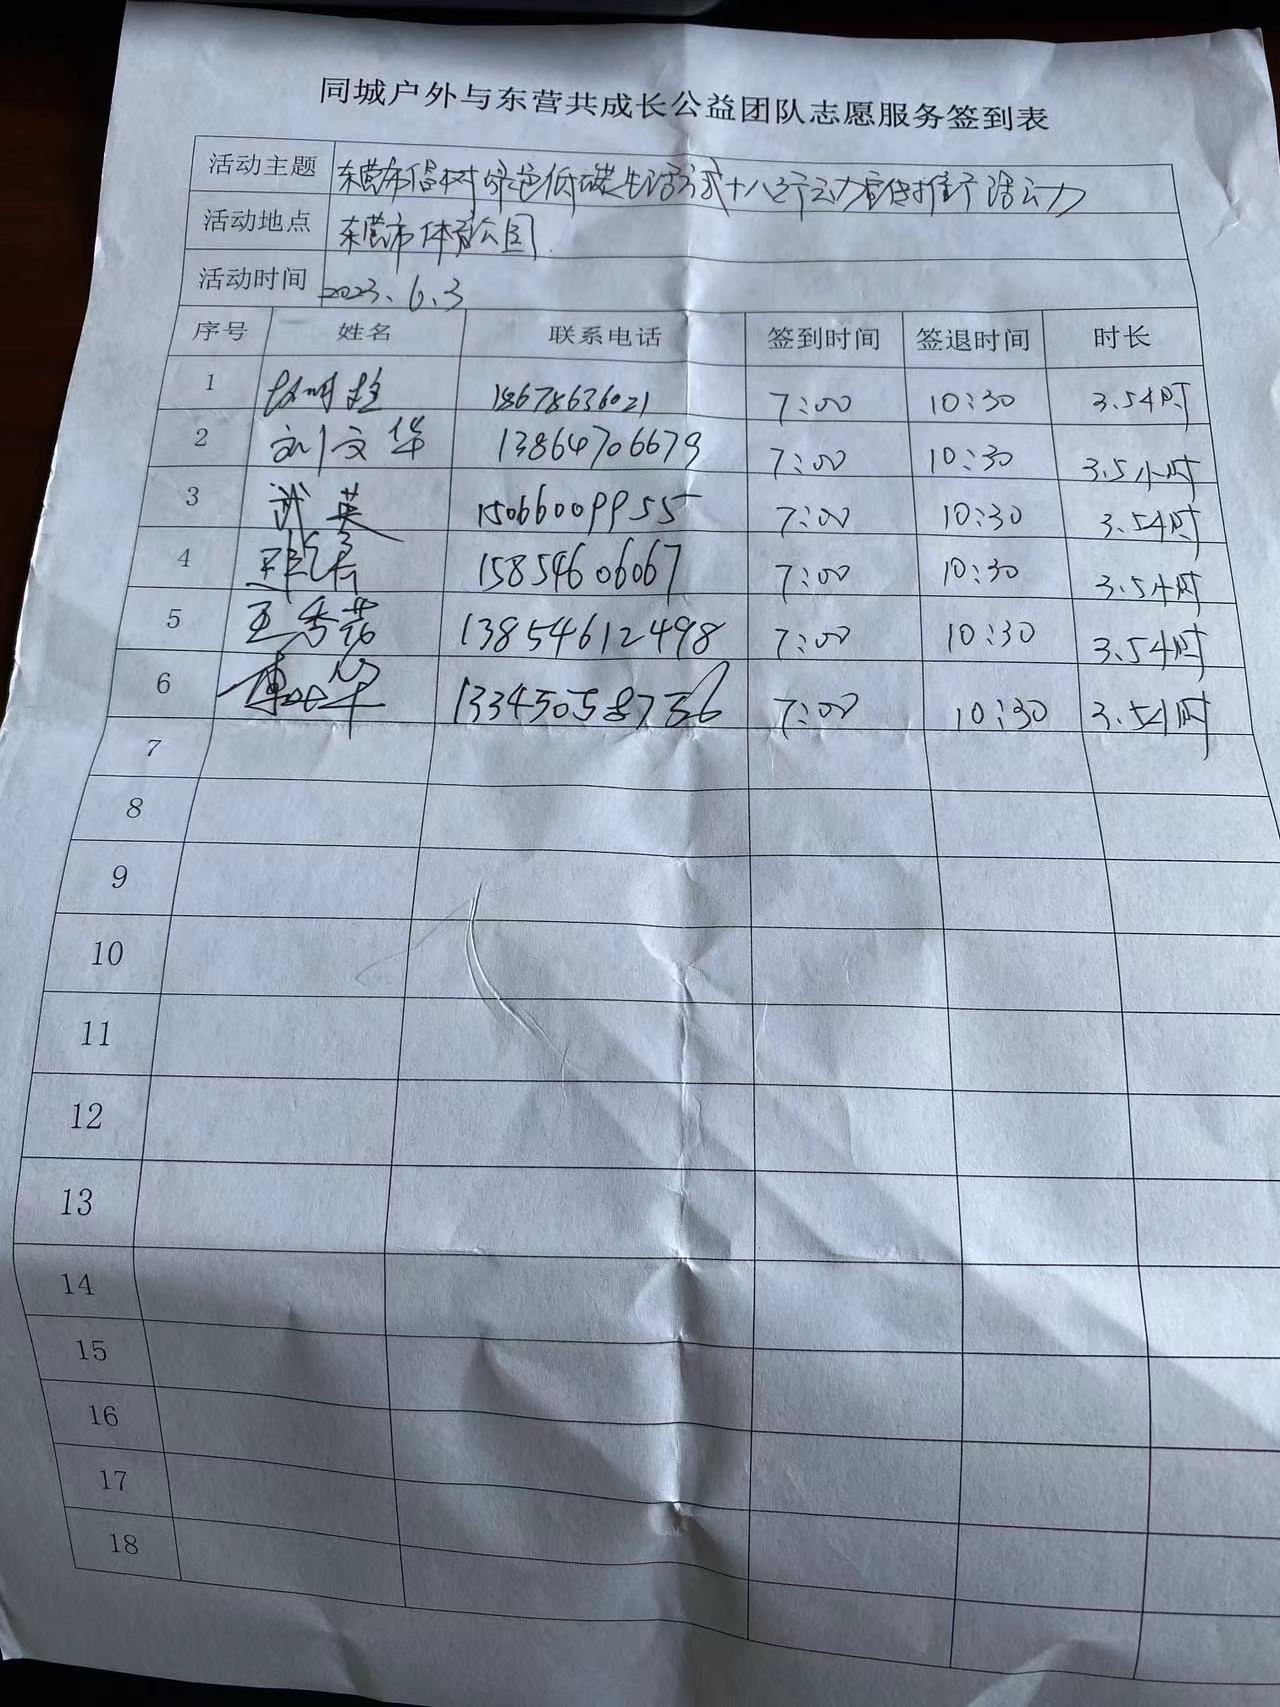 同城户外与东营共成长公益团队志愿服务签到表
活动主题 东营市倡树绿色低碳生活方式十八之行动宣传推广活动
活动地点 东营市体育公园
活动时间 2023.6.3
序号 姓名 联系电话 签到时间 签退时间 时长
1 18678636021 7:00 10:30 3.5小时
2 刘文华 13864706679 7:00 10:30 3.5小时
3 武英 15066009955 7:00 10:30 3.5小时
4 15854606067 7:00 10:30 3.5小时
5 王秀花 13854612498 7:00 10:30 3.5小时
6 7:00 10:30 3.5小时
7
8
9
10
11
12
13
14
15
16
17
18